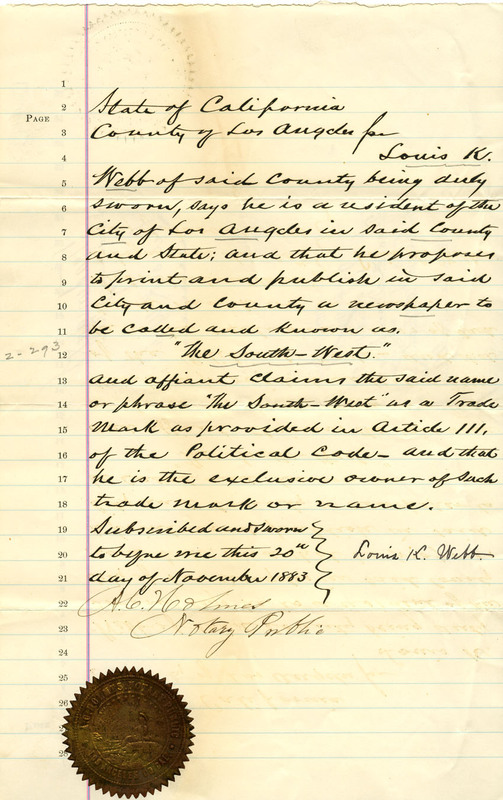 1
2 State of California
PAGE
3 County of Los Angeles
4 Louis K.
5 Webb of said County being duly
6 sworn, says he is a resident of the
7 City of Los Angeles in said County
8 and State; and that he proposes
9 to print and publish in said
10 City and County a newspaper to
11 be called and known as.
2-293
12 "The South-West."
13 and affiant claims the said name
14 or phrase "The South-West" as a Trade
15 Mark as provided in Article III.
16 of the Political Code - and that
17 he is the exclusive owner of such
18 trade mark or name.
19 Subscribed and sworn
20 to before me this 20th Louis K. Webb.
21 day of November 1883
22 A.C. Holmes
23 Notary Public
24
25
26